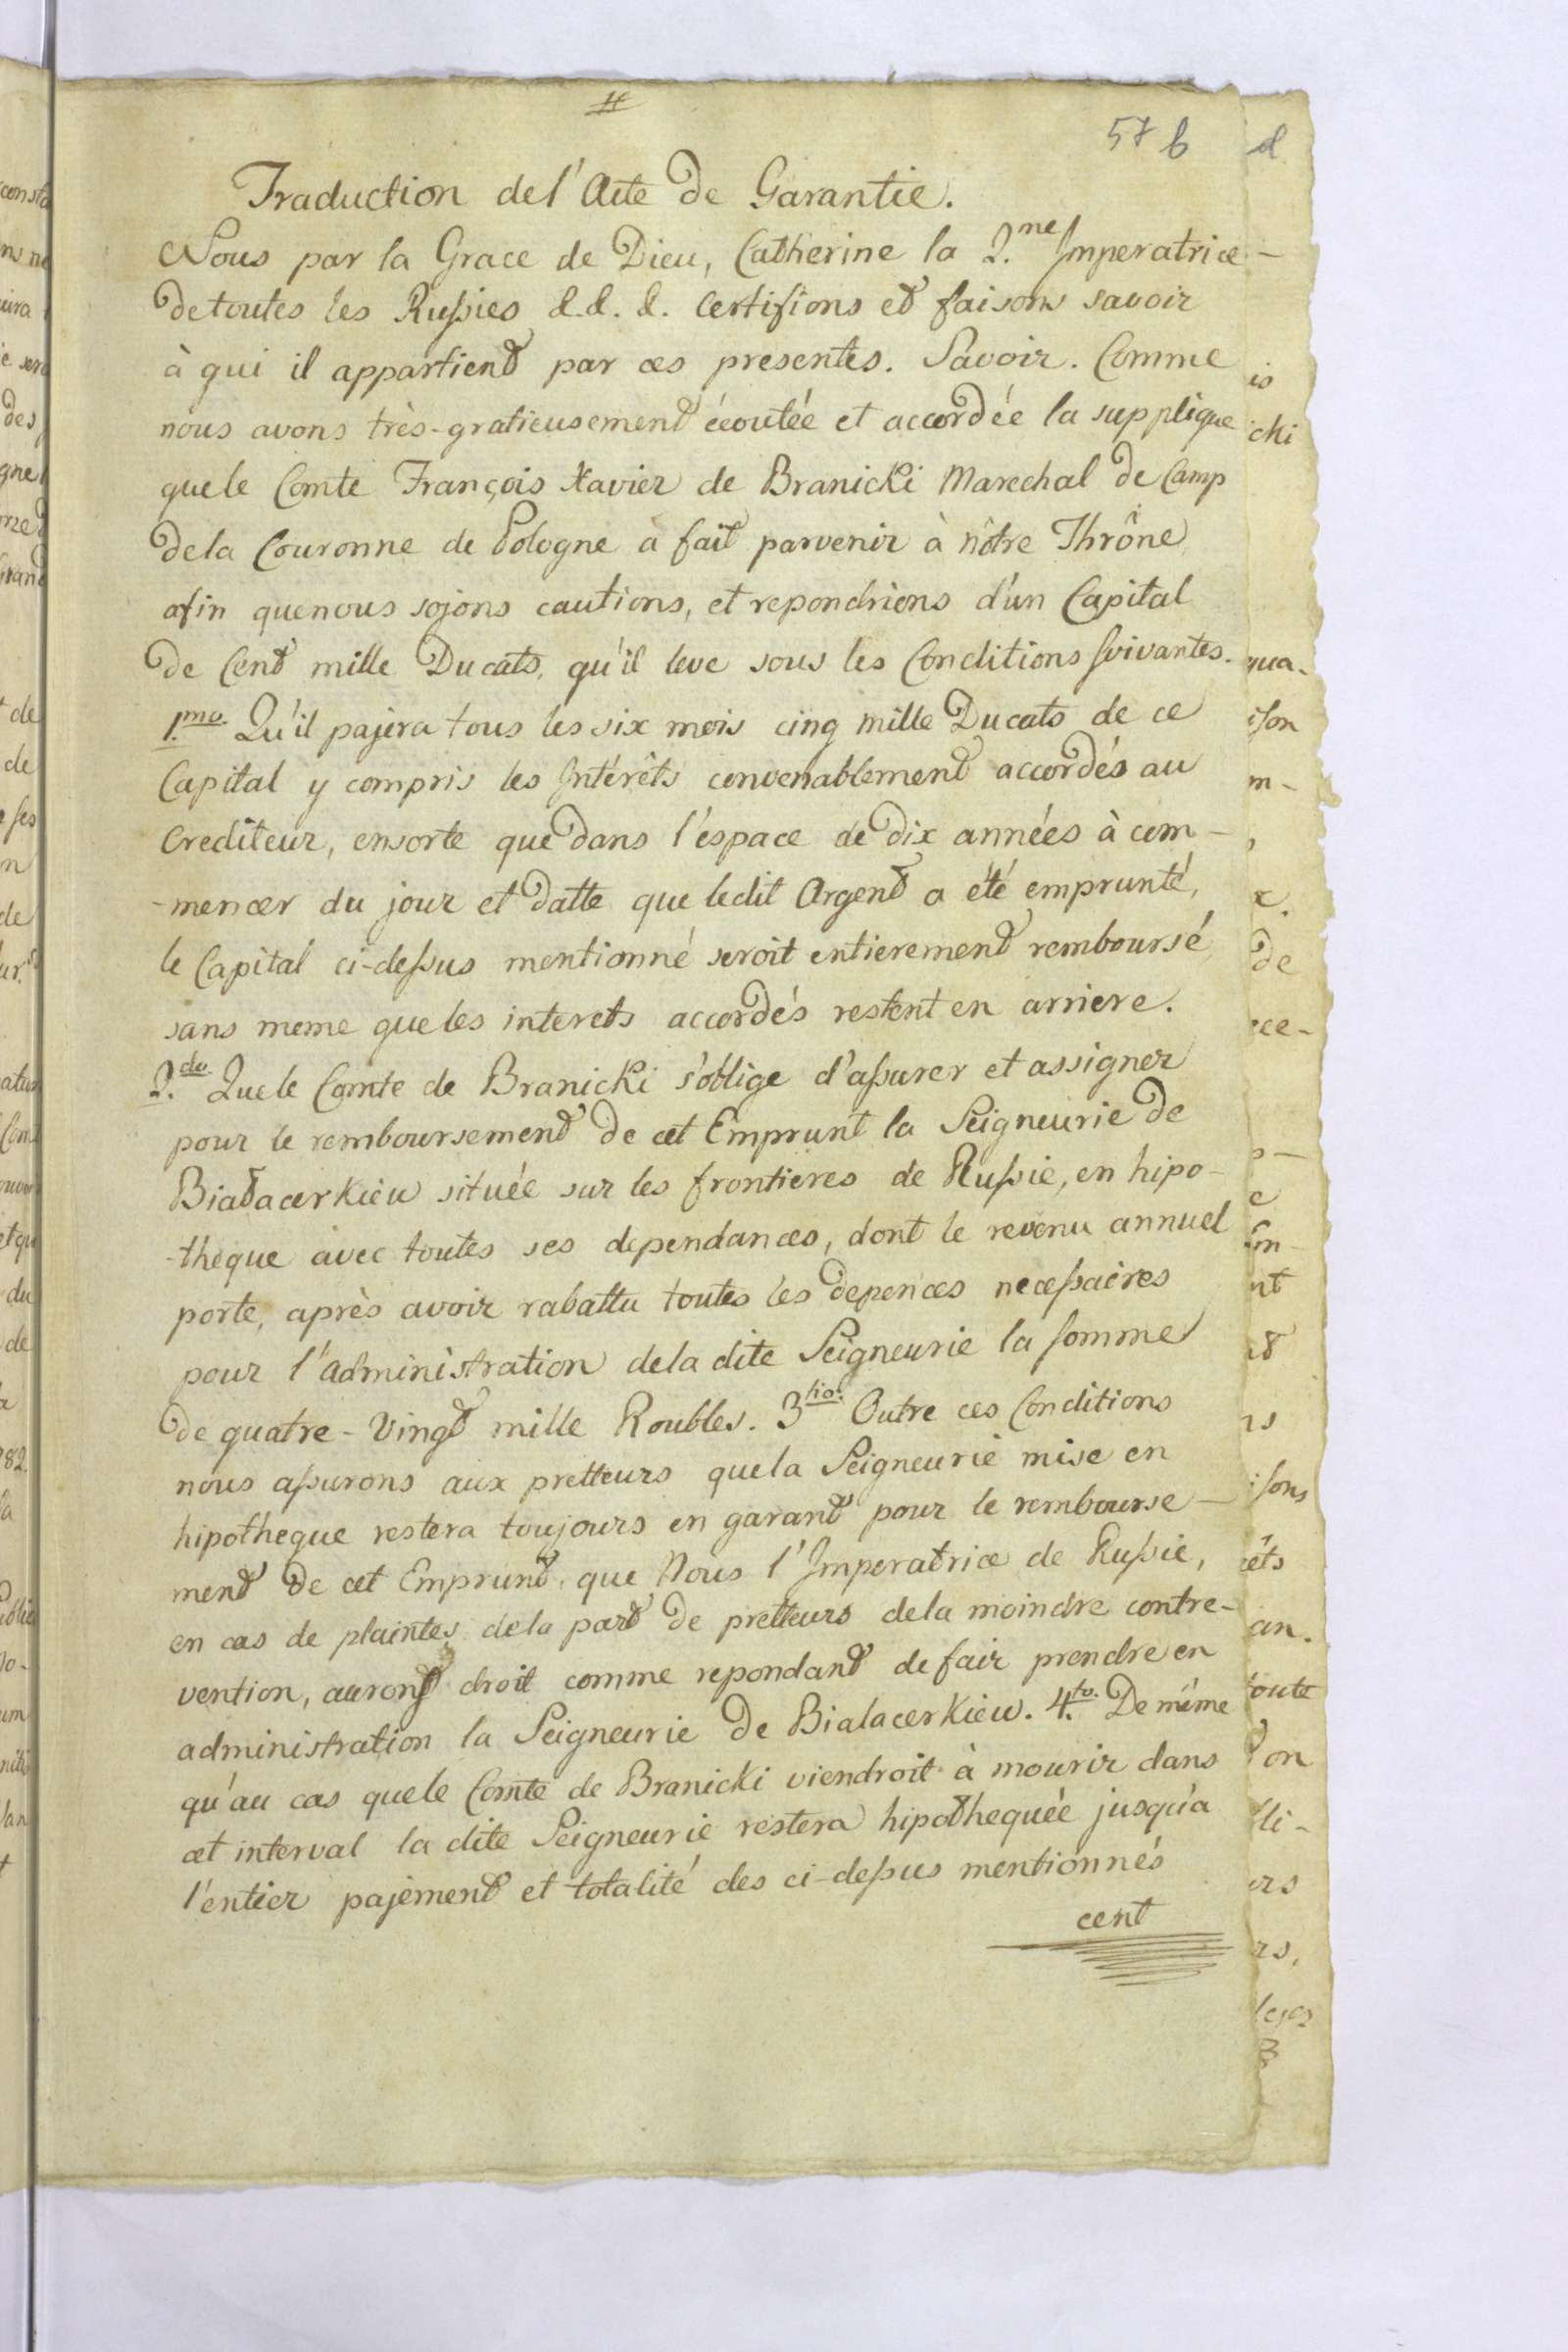 #
57 b
d
Traduction de l'Acte de Garantie.
Nous par la Grace de Dieu, Catherine la 2.me Imperatrice -
de toutes les Russies &.&.&. Certifions et faisons savoir
à qui il appartient par ces presentes. Savoir. Comme
nous avons très-gratieusement écoutée et accordée la supplique
que le Comte François Xavier de Branicki Marechal de Camp
de la Couronne de Pologne a fait parvenir à nôtre Thrône
afin que nous sojons cautions, et repondrions d'un Capital
de Cent mille Ducats, qu'il leve sous les Conditions suivantes.
1.mo Qu'il pajera tous les six mois cinq mille Ducats de ce
Capital y compris les Intérêts convenablement accordés au
Crediteur, ensorte que dans l'éspace de dix années à com-
-mencer du jour et datte que ledit Argent a été emprunté,
le Capital ci-dessus mentionné seroit entierement remboursé
sans meme que les interets accordés restent en arriere.
2.do Que le Comte de Branicki s'oblige d'assurer et assigner
pour le remboursement de cet Emprunt la Seigneurie de
Bialacerkiew située sur les frontieres de Russie, en hipo-
-theque avec toutes ses dependances, dont le revenu annuel
porte, après avoir rabattu toutes les depences necessaires
pour l'administration de la dite Seigneurie la somme
de quatre-Vingt mille Roubles. 3tio. Outre ces Conditions
nous assurons aux pretteurs que la Seigneurie mise en
hipotheque restera toujours en garant pour le rembourse-
ment de cet Emprunt, que Nous l'Imperatrice de Russie,
en cas de plaintes de la part de pretteurs de la moindre contre-
vention, auront droit comme repondant de fair prendre en
administration la Seigneurie de Bialacerkiew. 4.to De même
qu'au cas que le Comte de Branicki viendroit à mourir dans
cet interval la dite Seigneurie restera hipothequée jusqu'a
l'entier pajement et totalité des ci-dessus mentionnés
cent